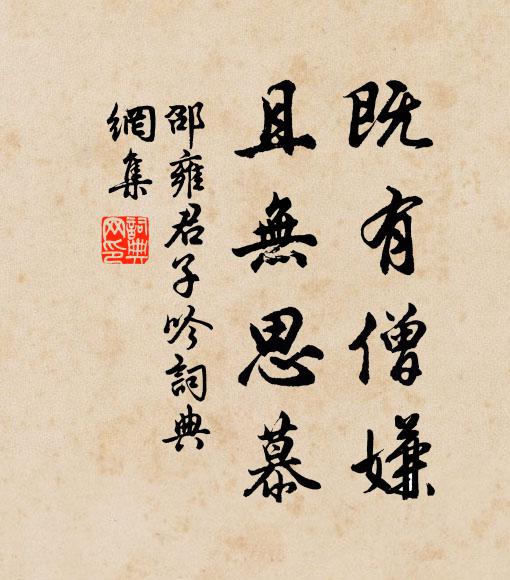 既有僧嫌
且無思慕
邵雍君子吟詞典
網集
詞典
网印